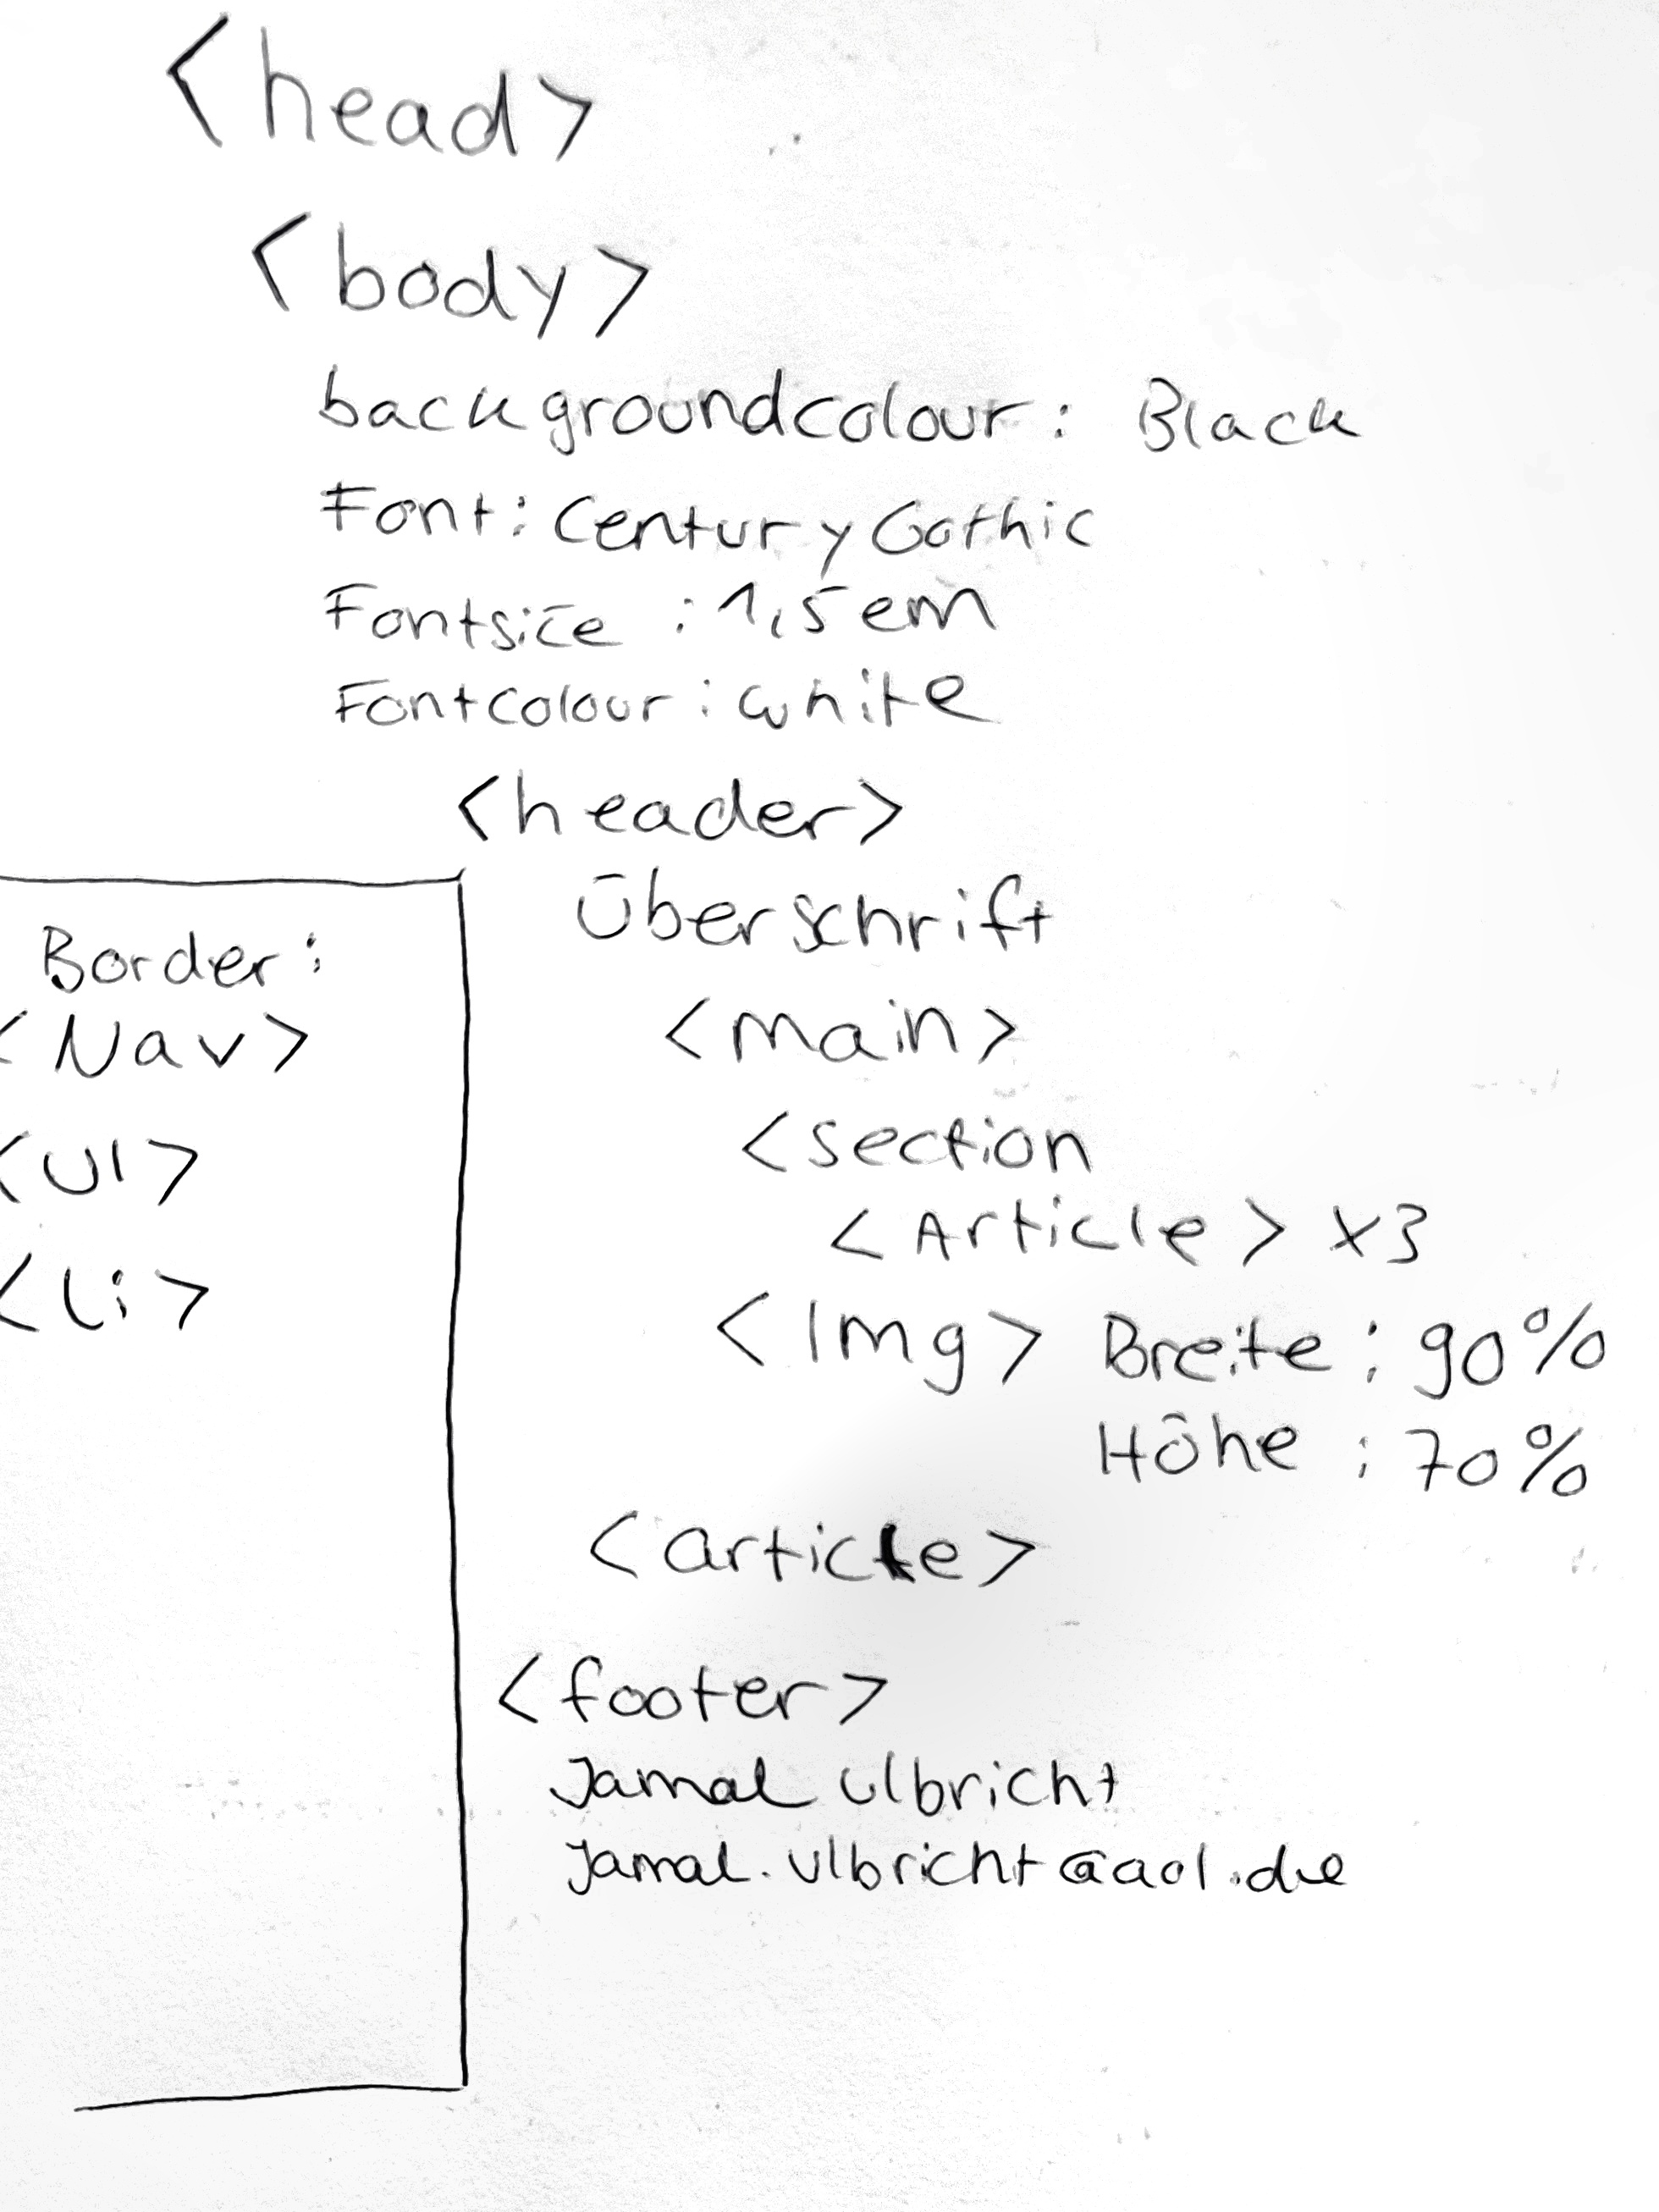 <head>
<body>
backgroundcolour: Black
Font: Century Gothic
Fontsize: 1,5em
Fontcolour: white
<header>
Überschrift
<main>
<section
<Article> x3
<Img> Breite: 90%
Höhe: 70%
<article>
<footer>
Jamal Ulbricht
Jamal.Ulbricht@aol.de
Border:
<Nav>
<Ul>
<li>